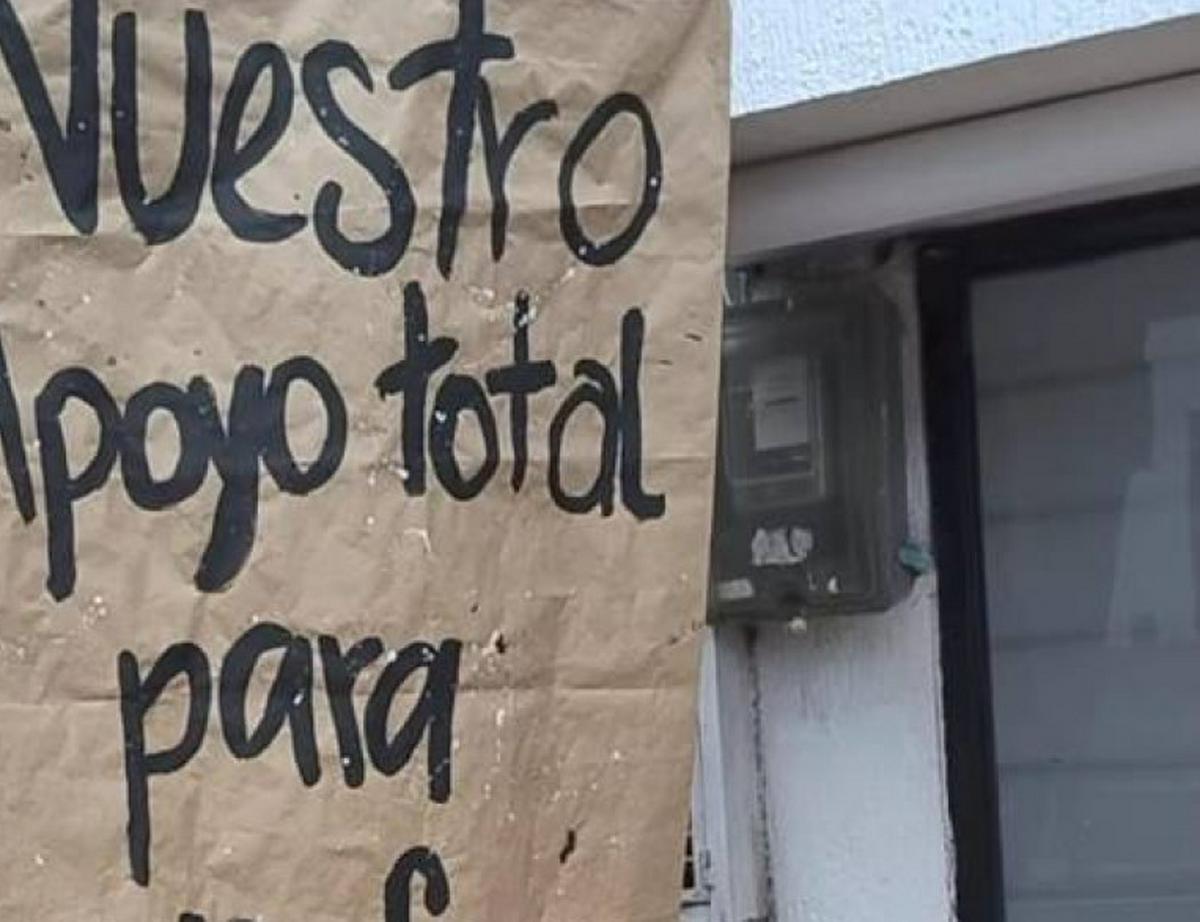 Nuestro
Apoyo total
para